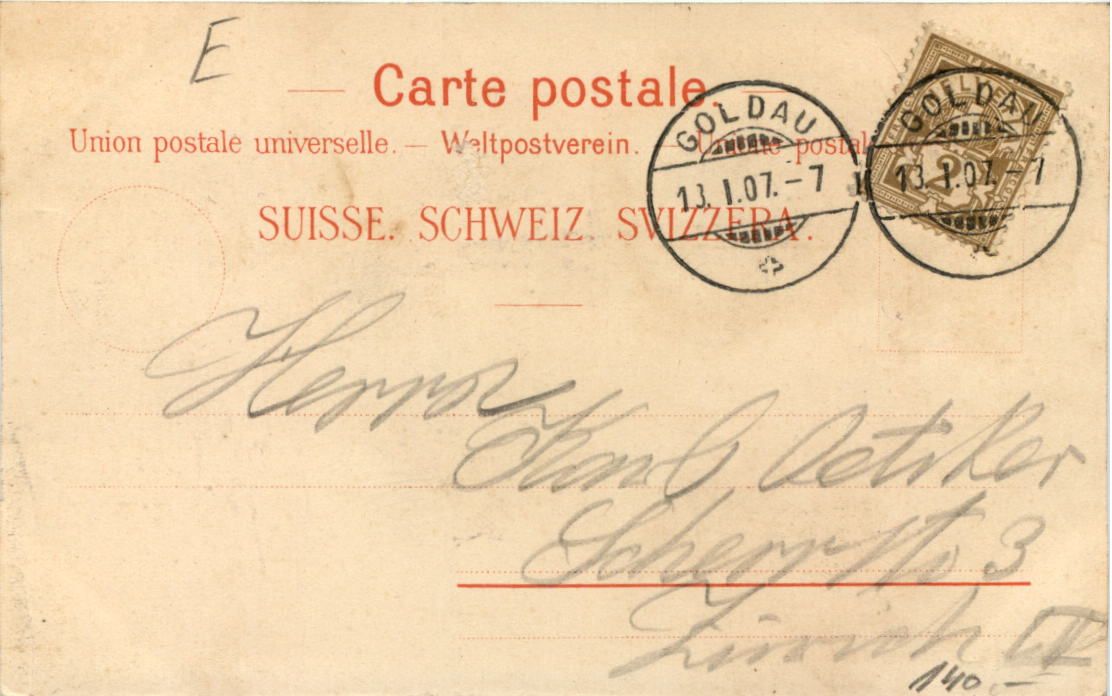 E
Carte postale.
Union postale universelle. — Weltpostverein. — Unione postale
SUISSE. SCHWEIZ. SVIZZERA.
GOLDAU
13. I.07.-7
GOLDAU
13. I.07.-7
HELVETIA
2
Herrn
Karl Oetiker
Scherrstr 3
Zürich IV
140.–